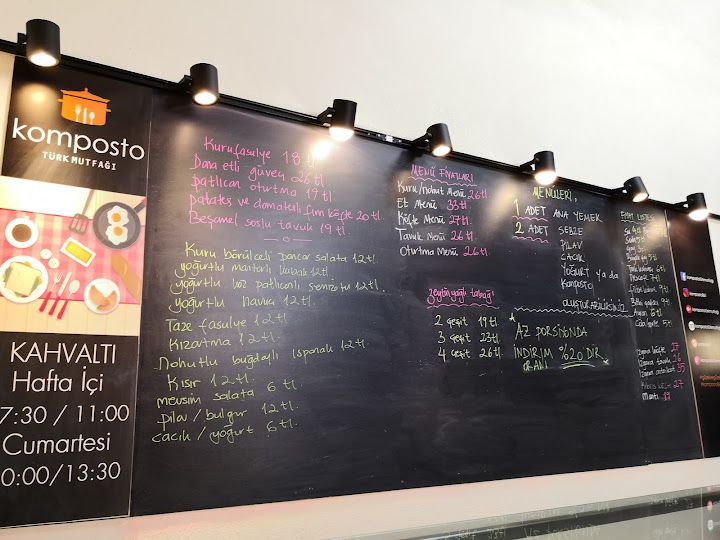 komposto
TÜRK MUTFAĞI
KAHVALTI
Hafta İçi
7:30 / 11:00
Cumartesi
0:00/13:30
Kurufasulye 18 tl
Dana etli güveç 26 tl
Patlıcan oturtma 19 tl
Patates ve domatesli fırın köfte 20 tl.
Beşamel soslu tavuk 19 tl.
Kuru börülceli pancar salata 12 tl.
yoğurtlu mantarlı kabak 12 tl.
yoğurtlu köz patlıcanlı semizotu 12 tl.
yoğurtlu havuç 12 tl.
Taze fasulye 12 tl.
Kızartma 12 tl.
Nohutlu buğdaylı ıspanak 12 tl.
Kısır 12 tl.
mevsim salata 6 tl.
pilav / bulgur 12 tl.
cacık / yoğurt 6 tl.
MENÜ FİYATLARI
Kuru/nohut Menü 26 tl
Et Menü 33 tl
Köfte Menü 27 tl.
Tavuk Menü 26 tl.
Oturtma Menü 26 tl.
Zeytinyağlı tabağı
2 çeşit 19 tl.
3 çeşit 23 tl.
4 çeşit 26 tl.
MENÜLERİ,
1 ADET ANA YEMEK
2 ADET SEBZE
PİLAV
CACIK
YOĞURT ya da
KOMPOSTO
OLUŞTURABİLİRSİNİZ
AZ PORSİYONDA
İNDİRİM %20 DİR
ORANI
FİYAT LİSTESİ
Izgara köfte 27
Izgara tavuk 26
Kıbrıs köfte 27
Mantı 19